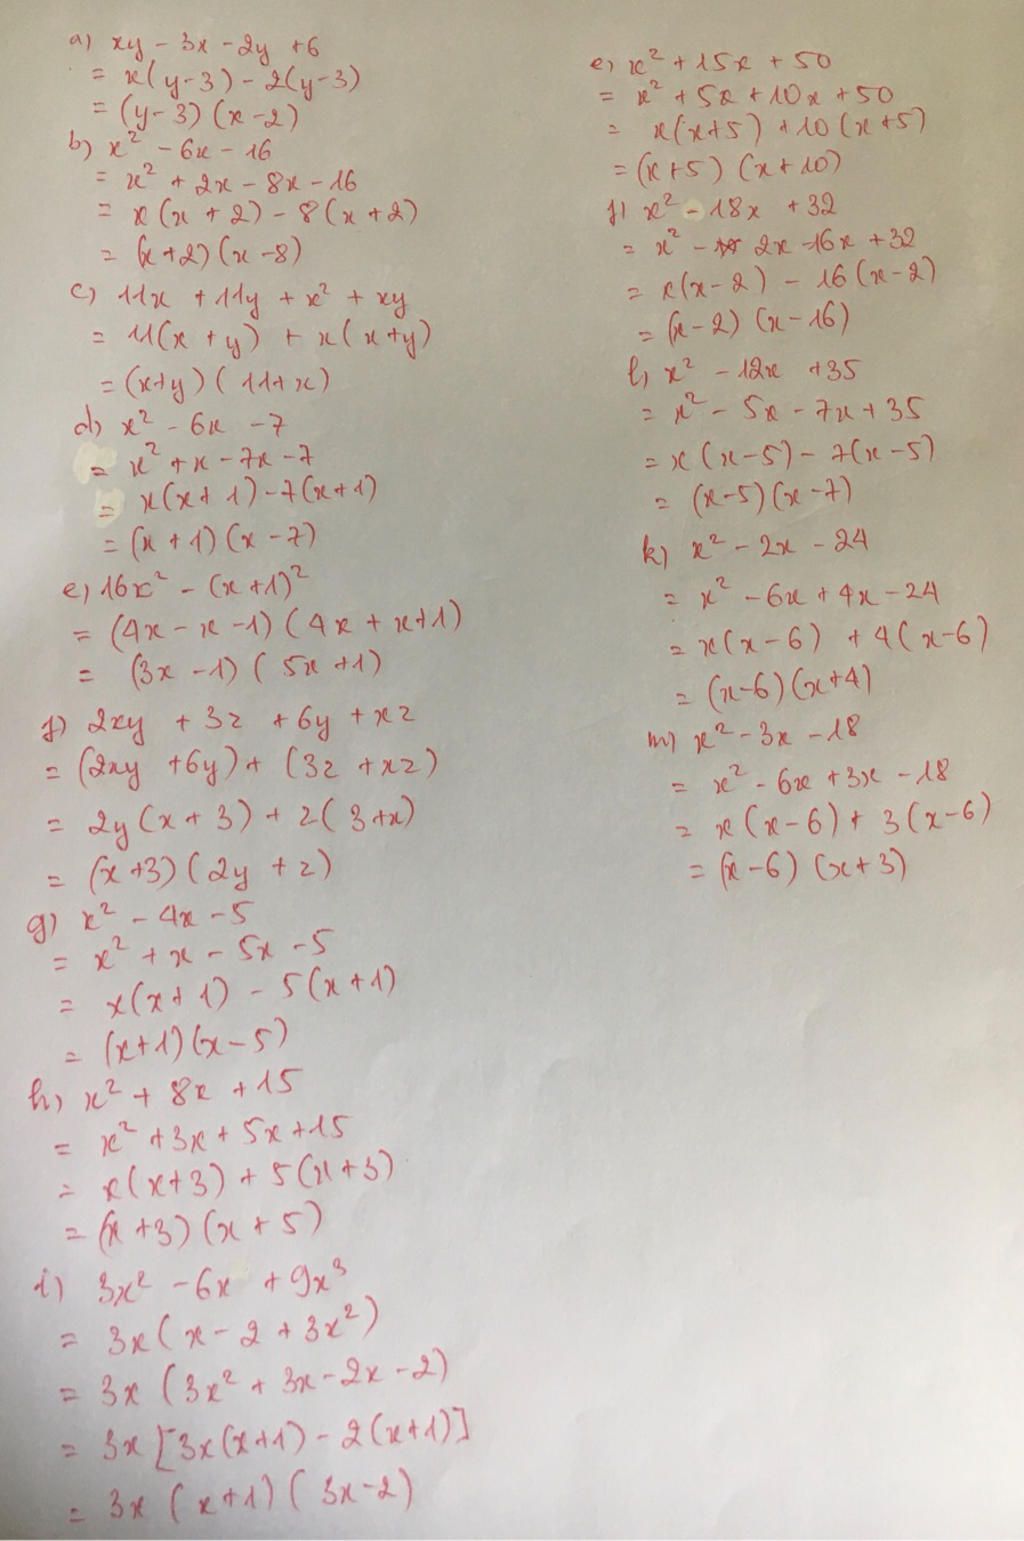 a) xy - 3x - 2y + 6
= x(y-3) - 2(y-3)
= (y-3)(x-2)
b) x² - 6x - 16
= x² + 2x - 8x - 16
= x(x+2) - 8(x+2)
= (x+2)(x-8)
c) 11x + 11y + x² + xy
= 11(x+y) + x(x+y)
= (x+y)(11+x)
d) x² - 6x - 7
= x² + x - 7x - 7
= x(x+1) - 7(x+1)
= (x+1)(x-7)
e) 16x² - (x+1)²
= (4x - x - 1)(4x + x + 1)
= (3x - 1)(5x + 1)
f) 2xy + 3z + 6y + xz
= (2xy + 6y) + (3z + xz)
= 2y(x+3) + z(3+x)
= (x+3)(2y+z)
g) x² - 4x - 5
= x² + x - 5x - 5
= x(x+1) - 5(x+1)
= (x+1)(x-5)
h) x² + 8x + 15
= x² + 3x + 5x + 15
= x(x+3) + 5(x+3)
= (x+3)(x+5)
i) 3x² - 6x + 9x³
= 3x(x - 2 + 3x²)
= 3x(3x² + 3x - 2x - 2)
= 3x[3x(x+1) - 2(x+1)]
= 3x(x+1)(3x-2)
e) x² + 15x + 50
= x² + 5x + 10x + 50
= x(x+5) + 10(x+5)
= (x+5)(x+10)
f) x² - 18x + 32
= x² - 2x - 16x + 32
= x(x-2) - 16(x-2)
= (x-2)(x-16)
h) x² - 12x + 35
= x² - 5x - 7x + 35
= x(x-5) - 7(x-5)
= (x-5)(x-7)
k) x² - 2x - 24
= x² - 6x + 4x - 24
= x(x-6) + 4(x-6)
= (x-6)(x+4)
m) x² - 3x - 18
= x² - 6x + 3x - 18
= x(x-6) + 3(x-6)
= (x-6)(x+3)